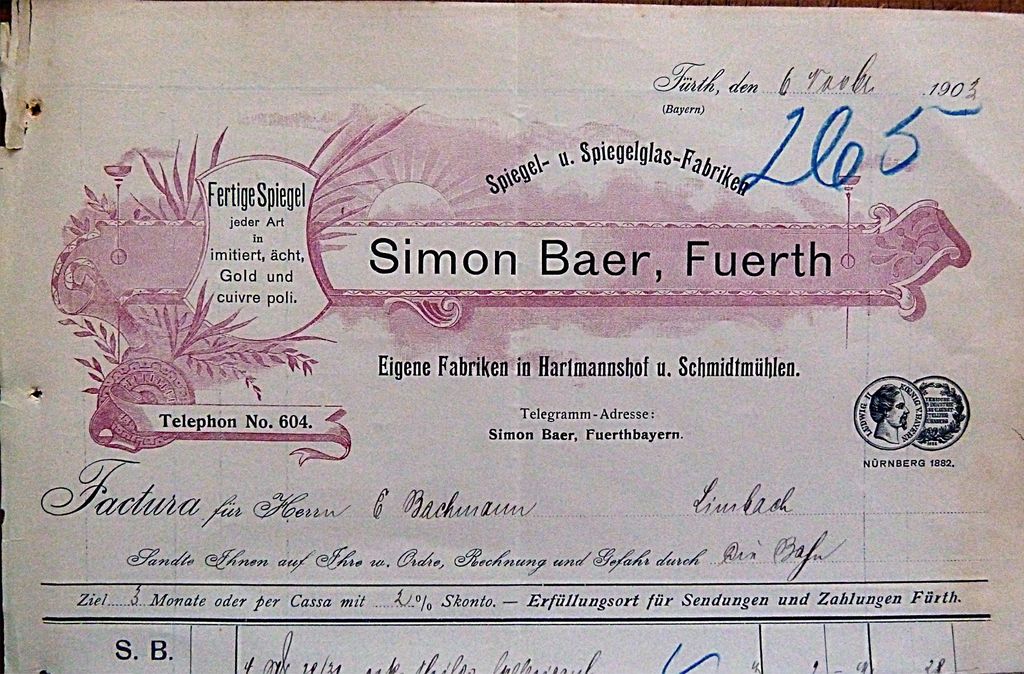 Fürth, den 6 Novbr 1903
(Bayern)
265
Spiegel- u. Spiegelglas-Fabriken
Fertige Spiegel
jeder Art
in
imitiert, ächt,
Gold und
cuivre poli.
Simon Baer, Fuerth
Eigene Fabriken in Hartmannshof u. Schmidtmühlen.
Telephon No. 604.
Telegramm-Adresse:
Simon Baer, Fuerthbayern.
LUDWIG II KOENIG V. BAYERN
NÜRNBERG 1882.
Factura für Herrn E Bachmann Limbach
Sandte Ihnen auf Ihre w. Ordre, Rechnung und Gefahr durch die Bahn
Ziel 3 Monate oder per Cassa mit 2 % Skonto. — Erfüllungsort für Sendungen und Zahlungen Fürth.
S. B.